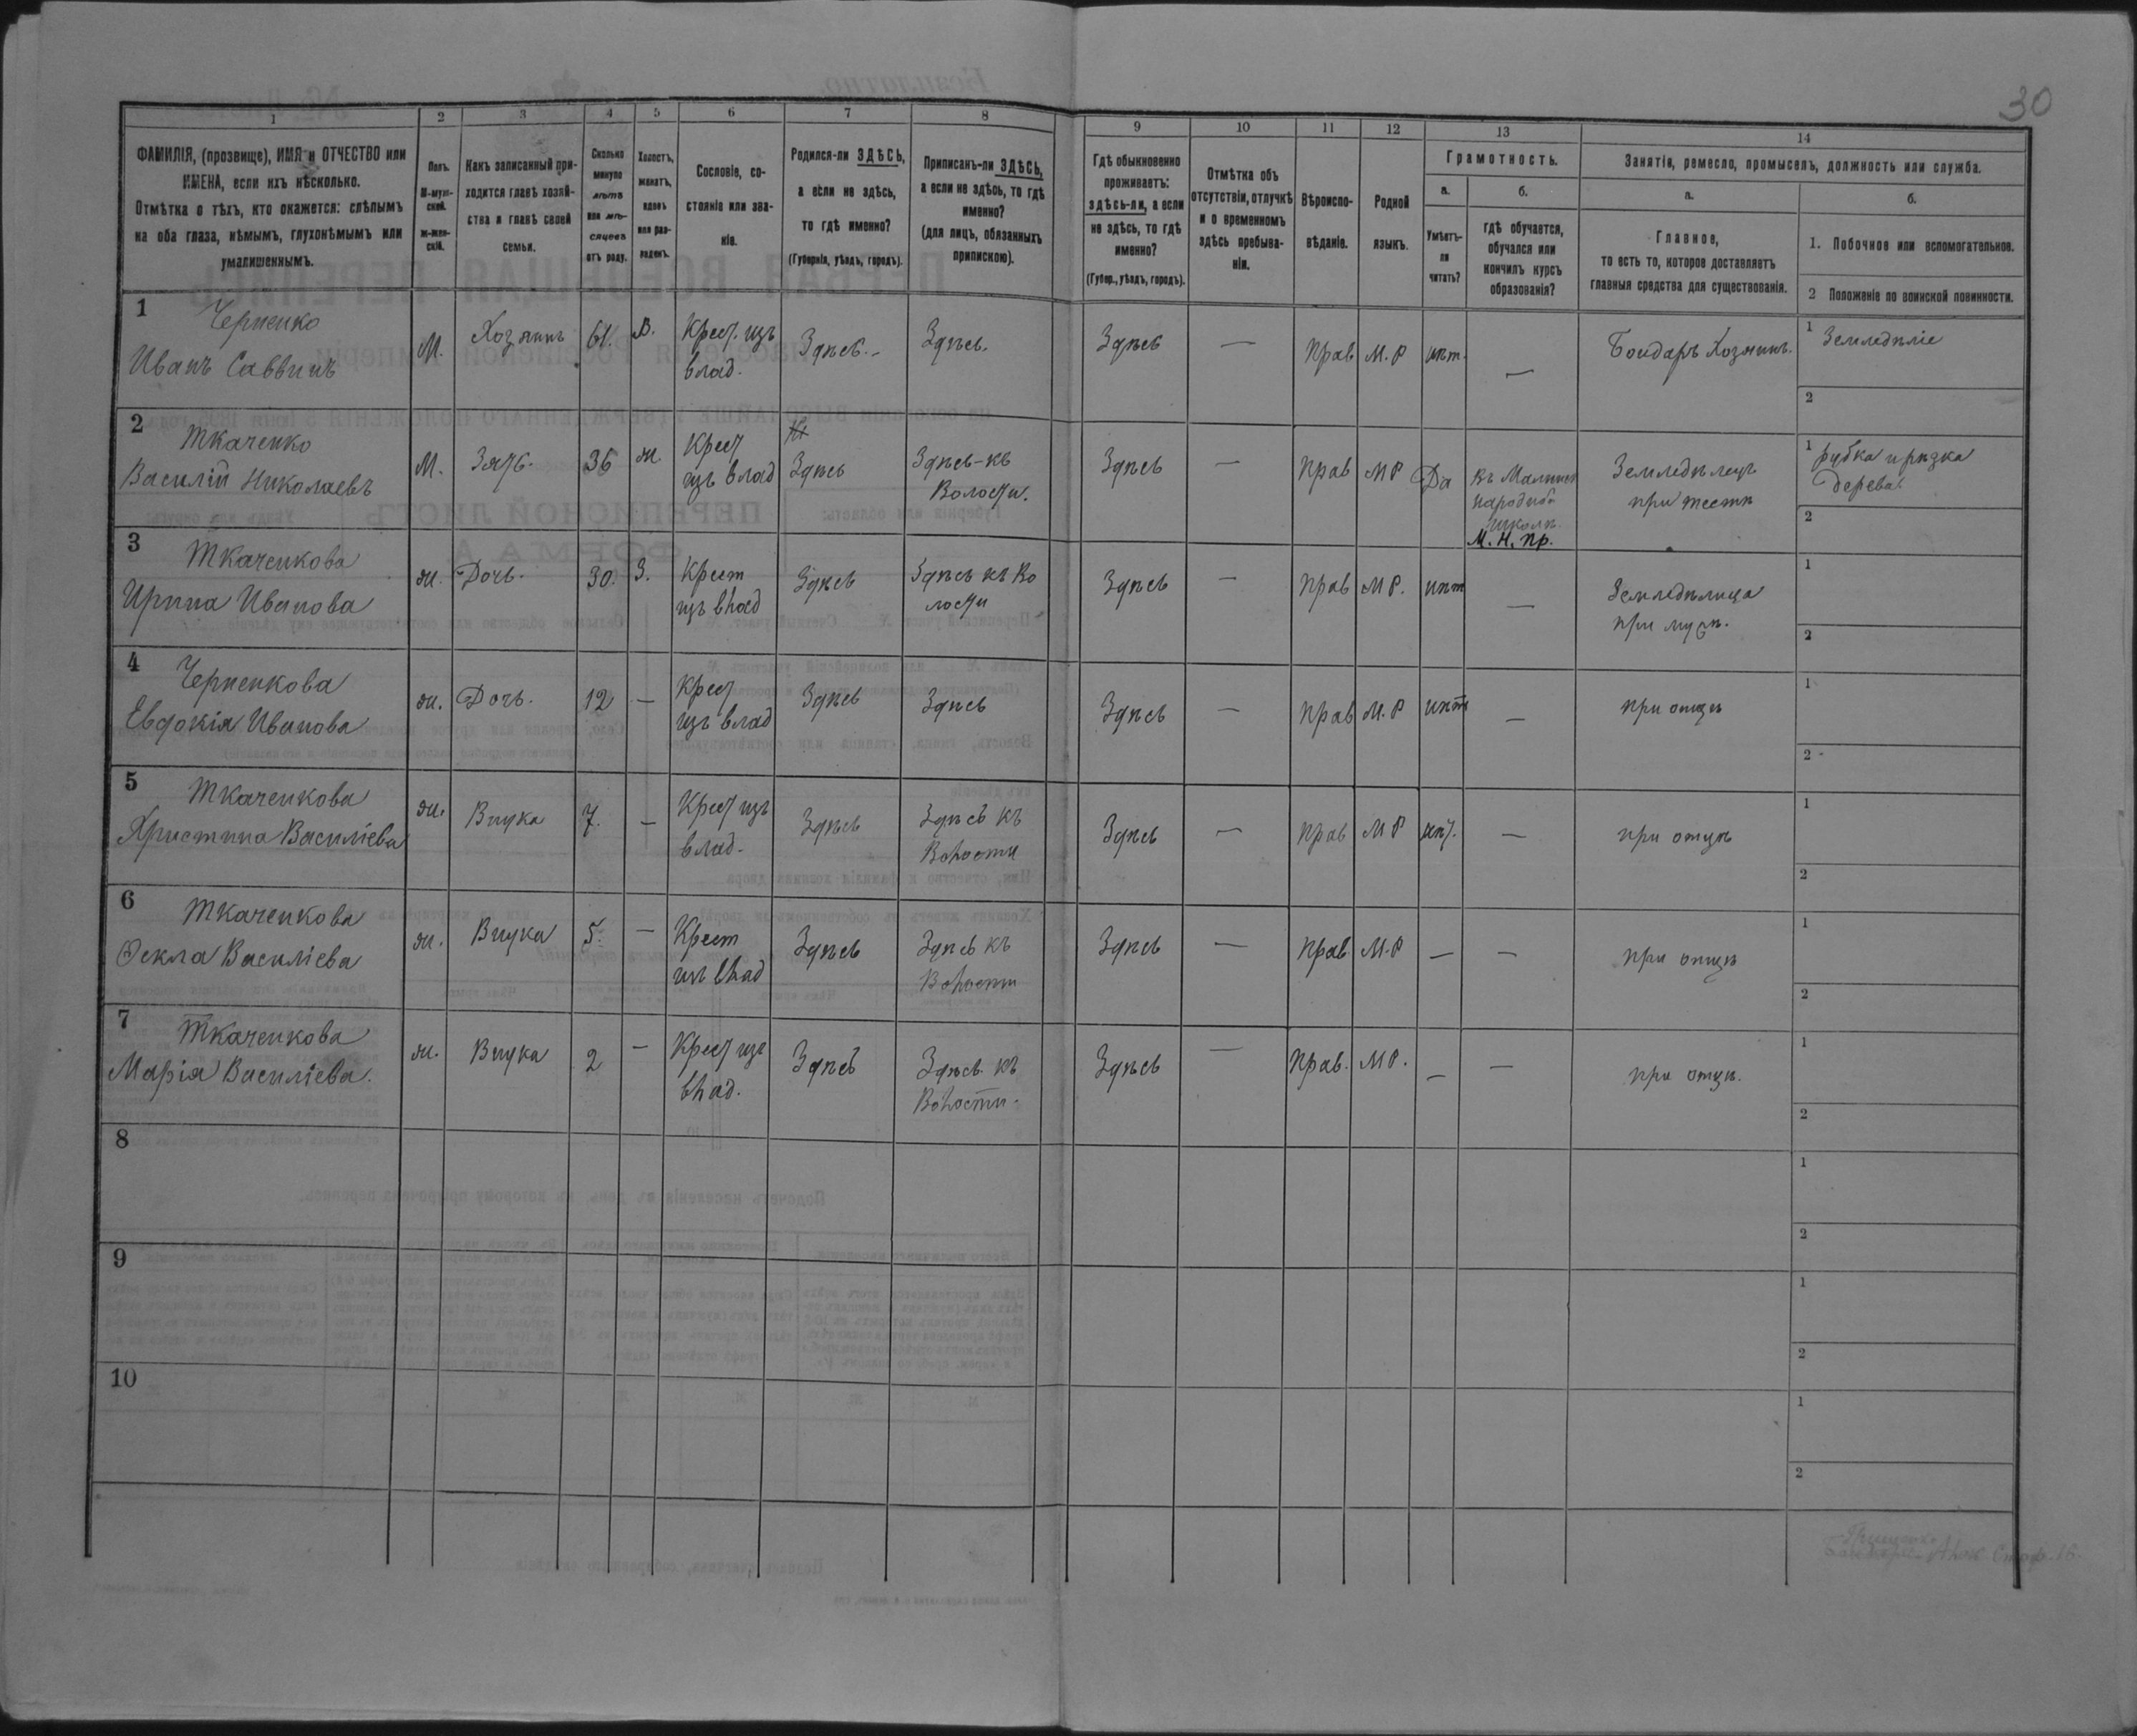 30
1 2 3 4 5 6 7 8 9 10 11 12 13 14
ФАМИЛІЯ, (прозвище), ИМЯ и ОТЧЕСТВО или
ИМЕНА, если ихъ нѣсколько.
Отмѣтка о тѣхъ, кто окажется: слѣпымъ
на оба глаза, нѣмымъ, глухонѣмымъ или
умалишеннымъ.
Полъ.
М-муж-
ской.
Ж-жен-
скій.
Какъ записанный при-
ходится главѣ хозяй-
ства и главѣ своей
семьи.
Сколько
минуло
лѣтъ
или мѣ-
сяцевъ
отъ роду.
Холостъ,
женатъ,
вдовъ
или раз-
веденъ.
Сословіе, со-
стояніе или зва-
ніе.
Родился-ли ЗДѢСЬ,
а если не здѣсь,
то гдѣ именно?
(Губернія, уѣздъ, городъ).
Приписанъ-ли ЗДѢСЬ,
а если не здѣсь, то гдѣ
именно?
(для лицъ, обязанныхъ
припискою).
Гдѣ обыкновенно
проживаетъ:
здѣсь-ли, а если
не здѣсь, то гдѣ
именно?
(Губер., уѣздъ, городъ).
Отмѣтка объ
отсутствіи, отлучкѣ
и о временномъ
здѣсь пребыва-
ніи.
Вѣроиспо-
вѣданіе.
Родной
языкъ.
Грамотность.
а.
Умѣетъ-
ли
читать?
б.
гдѣ обучается,
обучался или
кончилъ курсъ
образованія?
Занятіе, ремесло, промыселъ, должность или служба.
а.
Главное,
то есть то, которое доставляетъ
главныя средства для существованія.
б.
1. Побочное или вспомогательное.
2 Положеніе по воинской повинности.
1 Черненко
Иванъ Саввинъ
М.
Хозяинъ
61.
В.
Крест. изъ
влад.
Здѣсь.
Здѣсь.
Здѣсь
—
Прав
М.Р
нѣт.
—
Бондарь Хозяинъ.
1 Земледѣліе
2
2 Ткаченко
Василій Николаевъ
М.
Зять.
36
ж.
Крест
изъ влад
Здѣсь
Здѣсь-къ
Волости.
Здѣсь
—
Прав
МР
Да
народной
школѣ
М. Н. Пр.
Земледѣлецъ
при тестѣ
1 рубка и рѣзка
дерева.
2
3 Ткаченкова
Ирина Иванова
ж.
Дочь.
30.
З.
Крест
изъ влад
Здѣсь
Здѣсь къ Во
лости
Здѣсь
—
Прав
МР.
нѣт
—
Земледѣлица
при мужѣ.
1
2
4 Черненкова
Евдокія Иванова
ж.
Дочь.
12
—
Крест
изъ влад
Здѣсь
Здѣсь
Здѣсь
—
Прав
М.Р
нѣт
—
при отцѣ
1
2
5 Ткаченкова
Христина Василіева
ж.
Внука
7.
—
Крест изъ
влад.
Здѣсь
Здѣсь къ
Волости
Здѣсь
—
Прав
МР
нѣт.
—
при отцѣ
1
2
6 Ткаченкова
Ѳекла Василіева
ж.
Внука
5.
—
Крест
изъ влад
Здѣсь
Здѣсь къ
Волости
Здѣсь
—
Прав.
М.Р
—
—
при отцѣ
1
2
7 Ткаченкова
Марія Василіева.
ж.
Внука
2
—
Крест изъ
влад.
Здѣсь
Здѣсь къ
Волости.
Здѣсь
—
Прав.
МР.
—
—
при отцѣ.
1
2
8
1
2
9
1
2
10
1
2